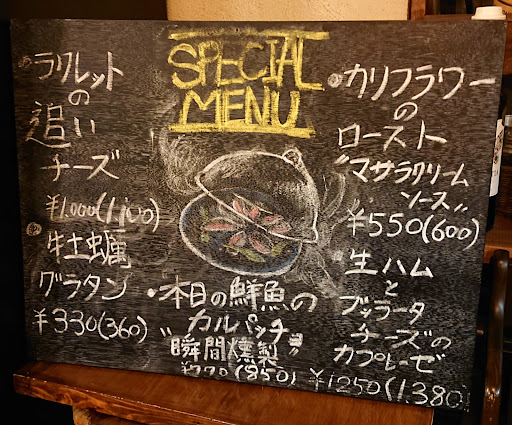 SPECIAL
MENU
・ラクレット
の
追い
チーズ
¥1.000(1,100)
牡蠣
グラタン
¥330(360)
・本日の鮮魚の
カルパッチョ
"瞬間燻製"
¥770(850)
・カリフラワー
の
ロースト
"マサラクリーム
ソース"
¥550(600)
・生ハム
と
ブッラータ
チーズの
カプレーゼ
¥1250(1.380)